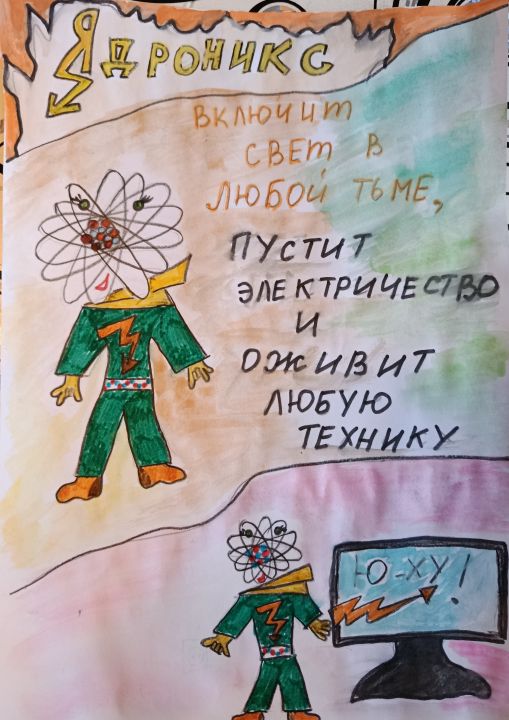 Ядроникс
включит
свет в
любой тьме,
пустит
электричество
и
оживит
любую
технику
Ю-ХУ!